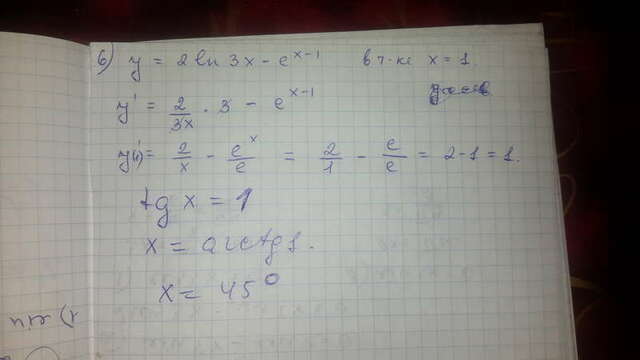 б) y = 2 ln 3x - e^(x-1) в т-ке x = 1.
y' = 2/3x · 3 - e^(x-1)
y'(1) = 2/x - e^x/e = 2/1 - e/e = 2-1 = 1.
tg x = 1
x = arctg 1.
x = 45°